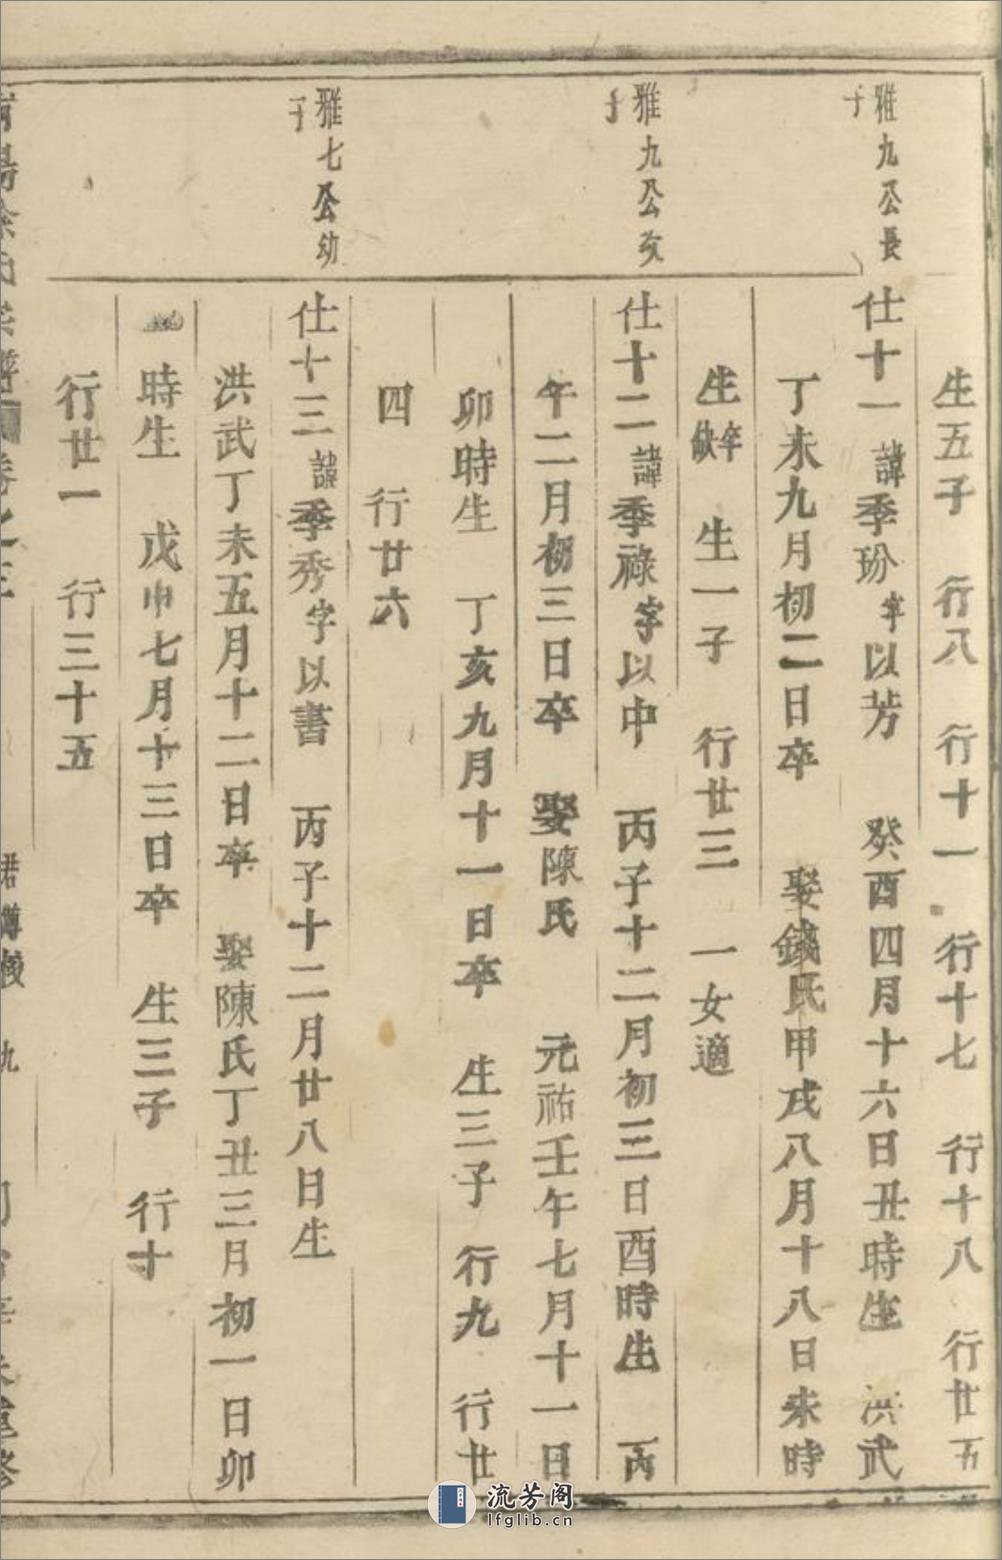 生五子 行八 行十一 行十七 行十八 行廿五
雅九公長子
仕十一諱季玢字以芳 癸酉四月十六日丑時生 洪武
丁未九月初二日卒 娶錢氏甲戌八月十八日未時
生卒缺 生一子 行廿三 一女適
雅九公次子
仕十二諱季祿字以中 丙子十二月初三日酉時生 丙
午二月初三日卒 娶陳氏 元祐壬午七月十一日
卯時生 丁亥九月十一日卒 生三子 行九 行廿
四 行廿六
雅七公幼子
仕十三諱季秀字以書 丙子十二月廿八日生
洪武丁未五月十二日卒 娶陳氏丁丑三月初一日卯
時生 戊申七月十三日卒 生三子 行十
行廿一 行三十五
陽徐氏宗譜 卷之三 九
流芳阁
lfglib.cn